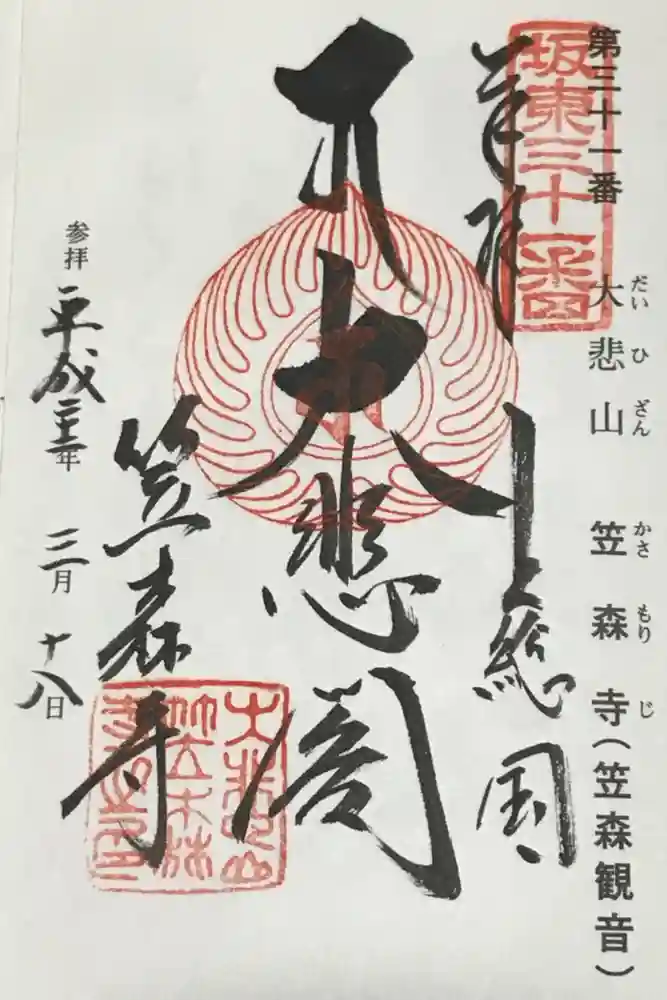 第三十一番
大悲山 笠森寺（笠森観音）
だい ひ ざん かさ もり じ
坂東三十一番
奉拝
上総国
大悲閣
笠森寺
参拝 平成二十二年 三月 十八日